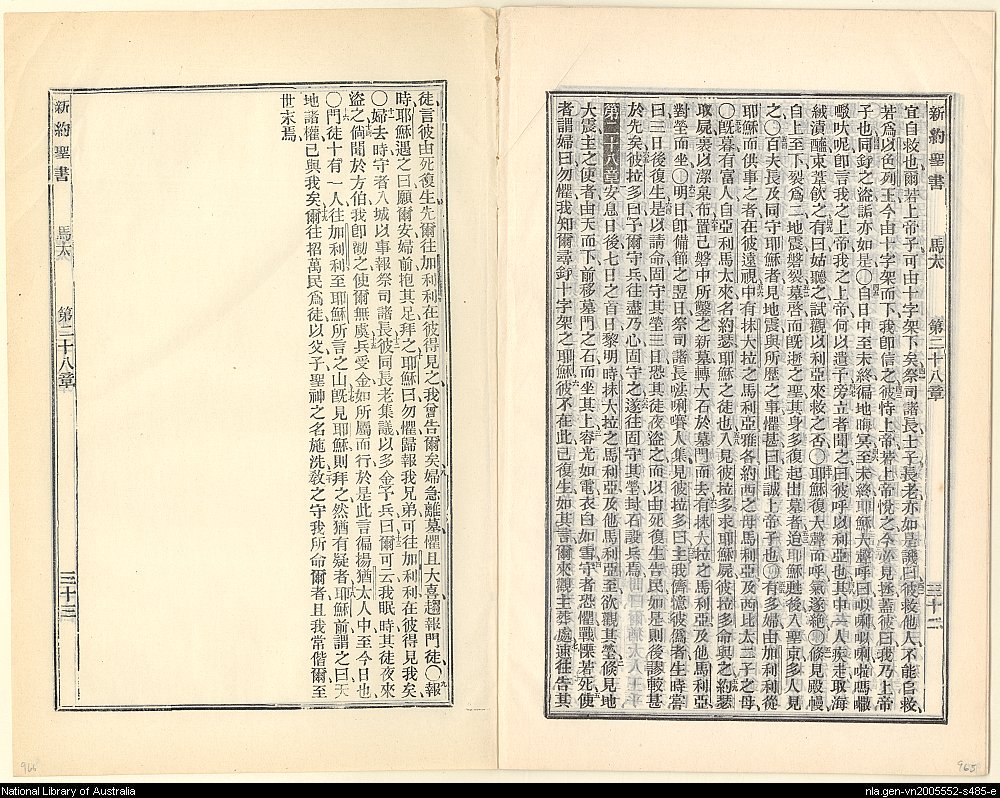 新約聖書 馬太 第二十八章 三十二
宜自救也爾若上帝子可由十字架下矣祭司諸長士子長老亦如是譏曰彼救他人不能自救
若爲以色列王今由十字架而下我卽信之彼恃上帝若上帝悅之今必見拯蓋彼曰我乃上帝
子也同釘之盜詬亦如是〇自日中至未終徧地晦冥至未終耶穌大聲呼曰
呋呢卽言我之上帝我之上帝何以遺予旁立者聞之曰彼呼以利亞也其中一人疾走取海
絨漬醯束葦飲之有曰姑聽之試觀以利亞來救之否〇耶穌復大聲而呼氣遂絕〇倏見殿幔
自上至下裂爲二地震磐裂墓啓而旣逝之聖其身多復起出墓者迨耶穌甦後入聖京多人見
之〇百夫長及同守耶穌者見地震與所歷之事懼甚曰此誠上帝子也〇有多婦由加利利從
耶穌而供事之者在彼遠視中有抹大拉之馬利亞雅各約西之母馬利亞及西比太二子之母
〇旣暮有富人自亞利馬太來名約瑟耶穌之徒也入見彼拉多求耶穌屍彼拉多命與之約瑟
取屍裹以潔枲布置己磐中所鑿之新墓轉大石於墓門而去有抹大拉之馬利亞及他馬利亞
對塋而坐〇明日卽備節之翌日祭司諸長唎賽人集見彼拉多曰主我儕憶彼僞者生時嘗
曰三日後復生是以請命固守其塋三日恐其徒夜盜之而以由死復生告民如是則後謬較甚
於先矣彼拉多曰予爾守兵往盡乃心固守之遂往固守其塋封石設兵焉
第二十八章安息日後七日之首日黎明時抹大拉之馬利亞及他馬利亞至欲觀其塋倏見地
大震主之使者由天而下前移墓門之石而坐其上容光如電衣白如雪守者恐懼戰慄若死使
者謂婦曰勿懼我知爾尋釘十字架之耶穌彼不在此已復生如其言爾來觀主葬處速往告其
965
徒言彼由死復生先爾往加利利在彼得見之我曾告爾矣婦急離墓懼且大喜趨報門徒〇報
時耶穌遇之曰願爾安婦前抱其足拜之耶穌曰勿懼歸報我兄弟可往加利利在彼得見我矣
〇婦去時守者入城以事報祭司諸長彼同長老集議以多金予兵曰爾可云我眠時其徒夜來
盜之倘聞於方伯我卽勸之使爾無虞兵受金如所屬而行於是此言徧揚猶太人中至今日也
〇門徒十有一人往加利利至耶穌所言之山旣見耶穌則拜之然猶有疑者耶穌前謂之曰天
地諸權已與我矣爾往招萬民爲徒以父子聖神之名施洗敎之守我所命爾者且我常偕爾至
世末焉
新約聖書 馬太 第二十八章 三十三
966
National Library of Australia
nla.gen-vn2005552-s485-e